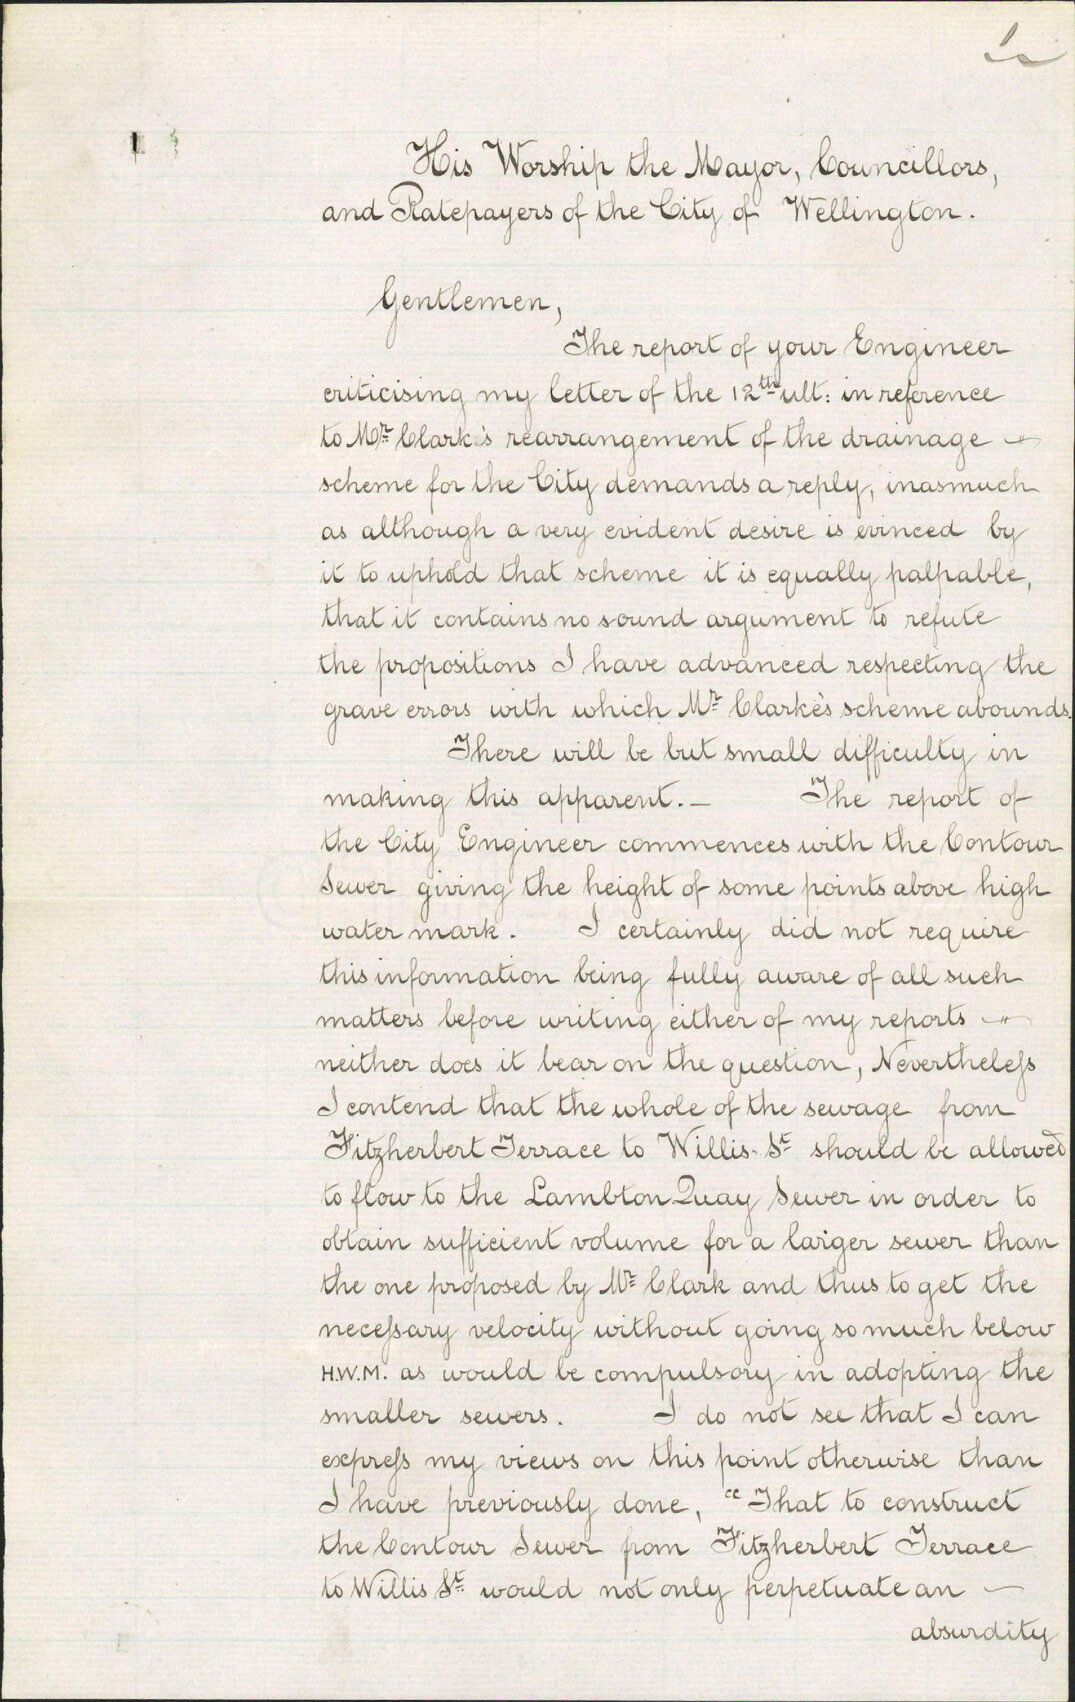 His Worship the Mayor, Councillors,
and Ratepayers of the City of Wellington.
Gentlemen,
The report of your Engineer
criticising my letter of the 12th ult: in reference
to Mr Clark's rearrangement of the drainage
scheme for the City demands a reply, inasmuch
as although a very evident desire is evinced by
it to uphold that scheme it is equally palpable,
that it contains no sound argument to refute
the propositions I have advanced respecting the
grave errors with which Mr Clarke's scheme abounds.
There will be but small difficulty in
making this apparent. — The report of
the City Engineer commences with the Contour
Sewer giving the height of some points above high
water mark. I certainly did not require
this information being fully aware of all such
matters before writing either of my reports
neither does it bear on the question, Nevertheless
I contend that the whole of the sewage from
Fitzherbert Terrace to Willis St should be allowed
to flow to the Lambton Quay Sewer in order to
obtain sufficient volume for a larger sewer than
the one proposed by Mr Clark and thus to get the
necessary velocity without going so much below
H.W.M. as would be compulsory in adopting the
smaller sewers. I do not see that I can
express my views on this point otherwise than
I have previously done, "That to construct
the Contour Sewer from Fitzherbert Terrace
to Willis St. would not only perpetuate an —
absurdity